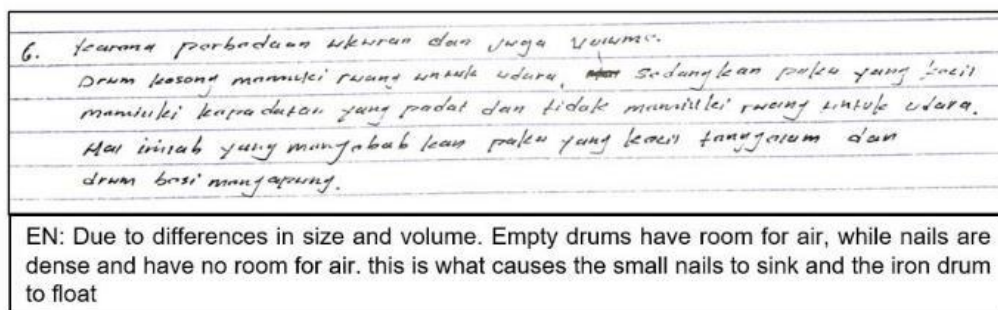 6. karena perbedaan ukuran dan juga volume.
Drum kosong memiliki ruang untuk udara, sedangkan paku yang kecil
memiliki kepadatan yang padat dan tidak memiliki ruang untuk udara.
Hal inilah yang mengebabkan paku yang kecil tenggelam dan
drum besi mengapung.
EN: Due to differences in size and volume. Empty drums have room for air, while nails are
dense and have no room for air. this is what causes the small nails to sink and the iron drum
to float